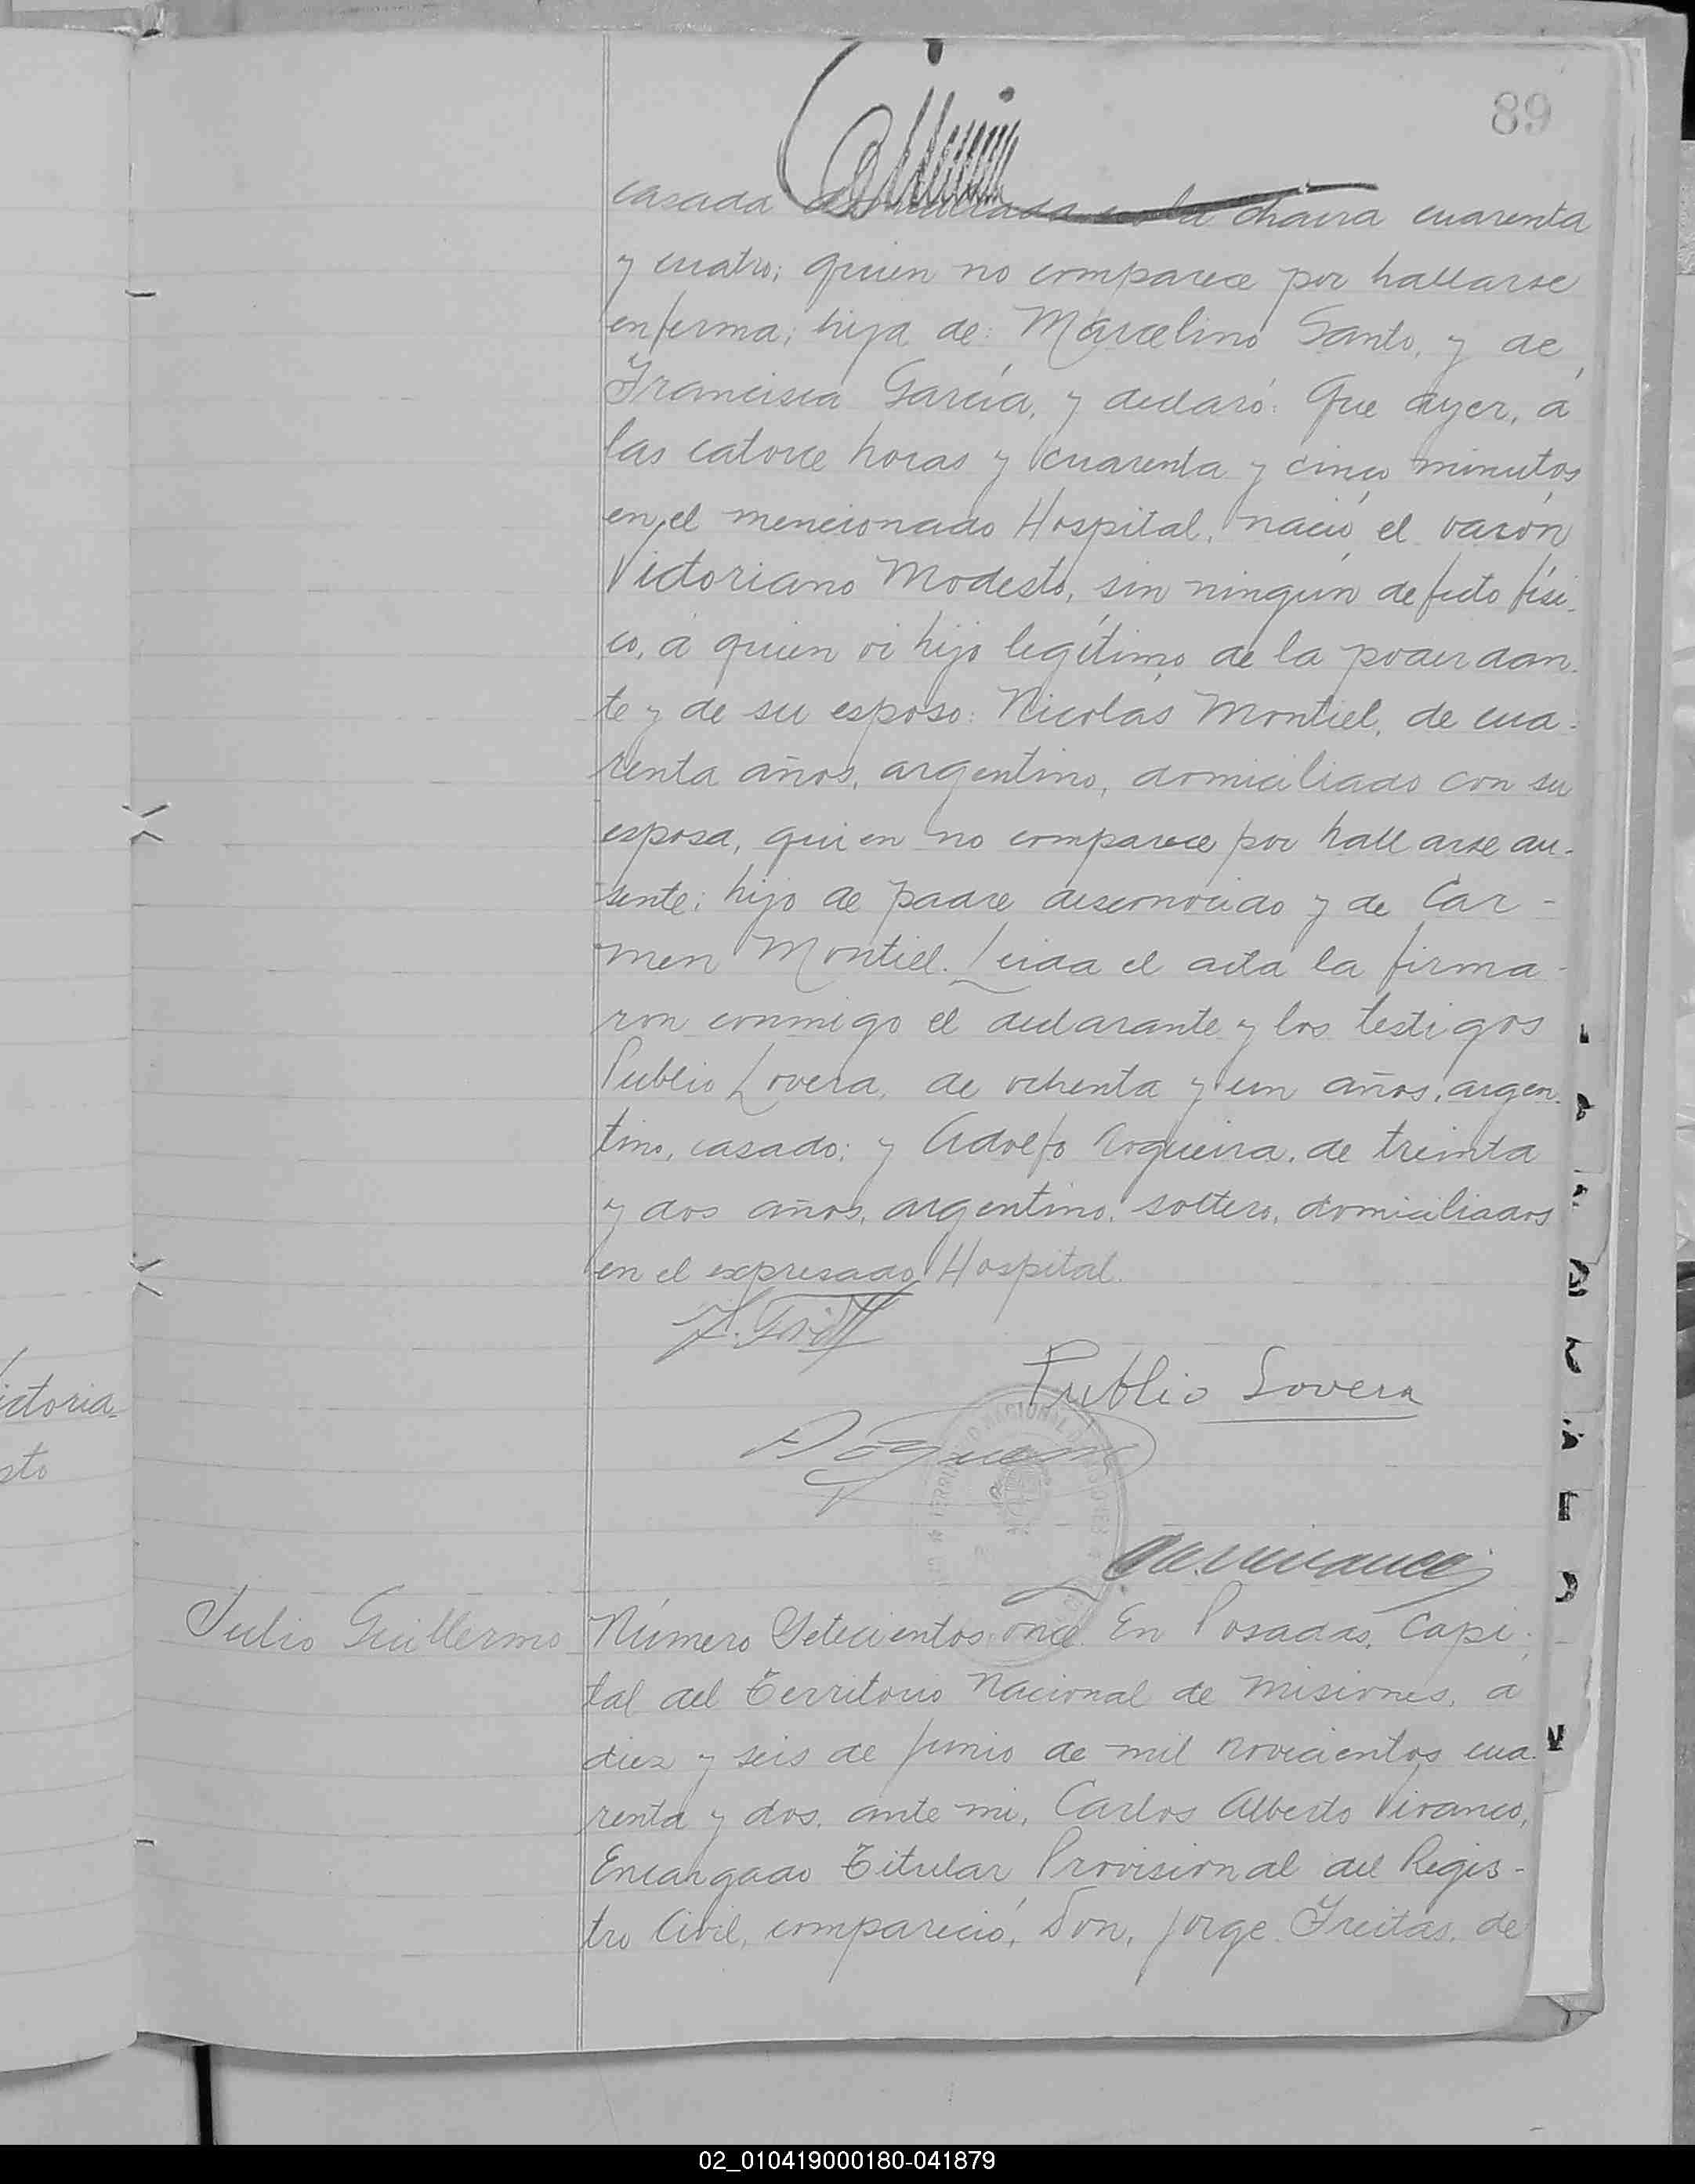 89
casada domiciliada en la chacra cuarenta
y cuatro; quien no comparece por hallarse
enferma; hija de: Marcelino Santo, y de
Francisca García, y declaró: Que ayer, á
las catorce horas y cuarenta y cinco minutos
en el mencionado Hospital, nació el varón
Victoriano Modesto, sin ningún defecto físi-
co, á quien vi hijo legítimo de la poderdan-
te y de su esposo: Nicolás Montiel, de cua-
renta años, argentino, domiciliado con su
esposa, quien no comparece por hallarse au-
sente; hijo de padre desconocido y de Car-
men Montiel. Leida el acta la firma-
ron conmigo el declarante y los testigos
Publio Lovera, de ochenta y un años, argen-
tino, casado; y Adolfo Nogueira, de treinta
y dos años, argentino, soltero, domiciliados
en el expresado Hospital.
Publio Lovera
ictoria-
sto
Julio Guillermo
Número Setecientos once. En Posadas, Capi-
tal del Territorio Nacional de Misiones, a
diez y seis de Junio de mil novecientos cua-
renta y dos, ante mi, Carlos Alberto Vivanco,
Encargado Titular Provisional del Regis-
tro Civil, compareció, Don, Jorge Freitas, de
02_010419000180-041879